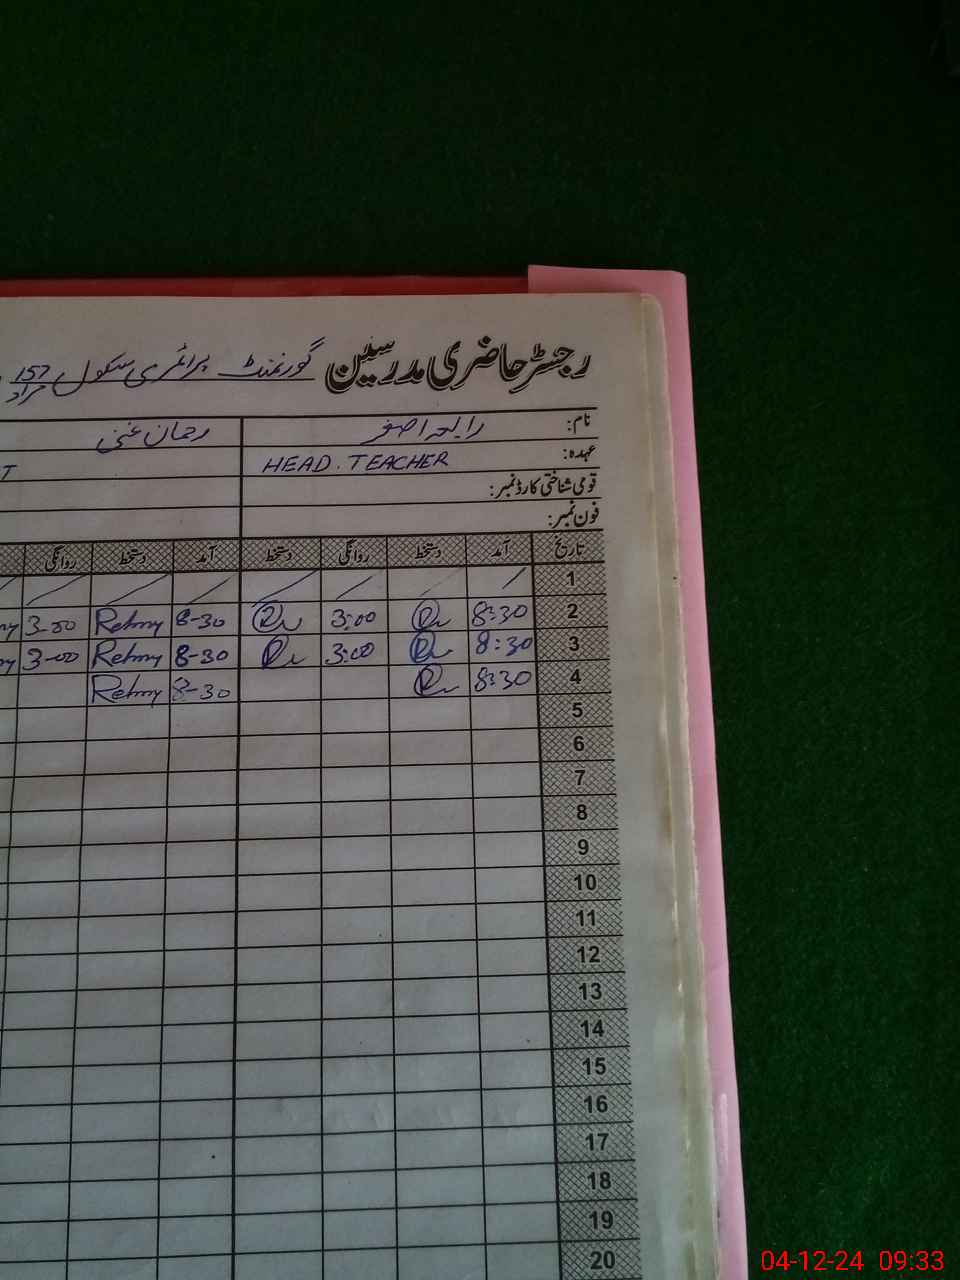 رجسٹر حاضری مدرسین گورنمنٹ پرائمری سکول 157 مراد
نام: رابعہ اصغر رحمان غنی
عہدہ: HEAD. TEACHER T
قومی شناختی کارڈ نمبر:
فون نمبر:
تاریخ آمد دستخط روانگی دستخط آمد دستخط روانگی
1
2 8:30 3:00 8-30 Rehmy 3-00
3 8:30 3:00 8-30 Rehmy 3-00
4 8:30 8-30 Rehmy
5
6
7
8
9
10
11
12
13
14
15
16
17
18
19
20
04-12-24 09:33